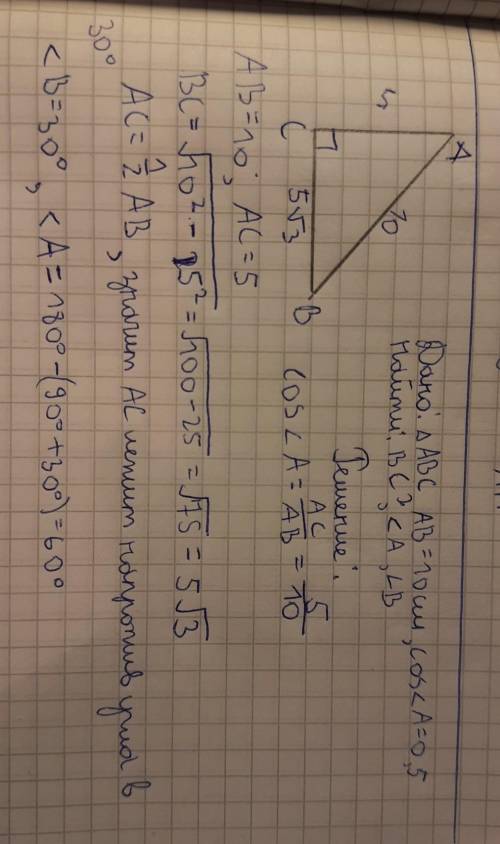 Дано: ΔABC AB=10 см, cos<A=0,5
Найти: BC?, <A, <B
A
5
10
C
5√3
B
Решение:
cos<A = AC/AB = 5/10
AB=10; AC=5
BC= √10² - 5² = √100-25 = √75 = 5√3
AC= 1/2 AB, значит AC лежит напротив угла в
30°
<B=30°, <A=180°-(90°+30°)=60°